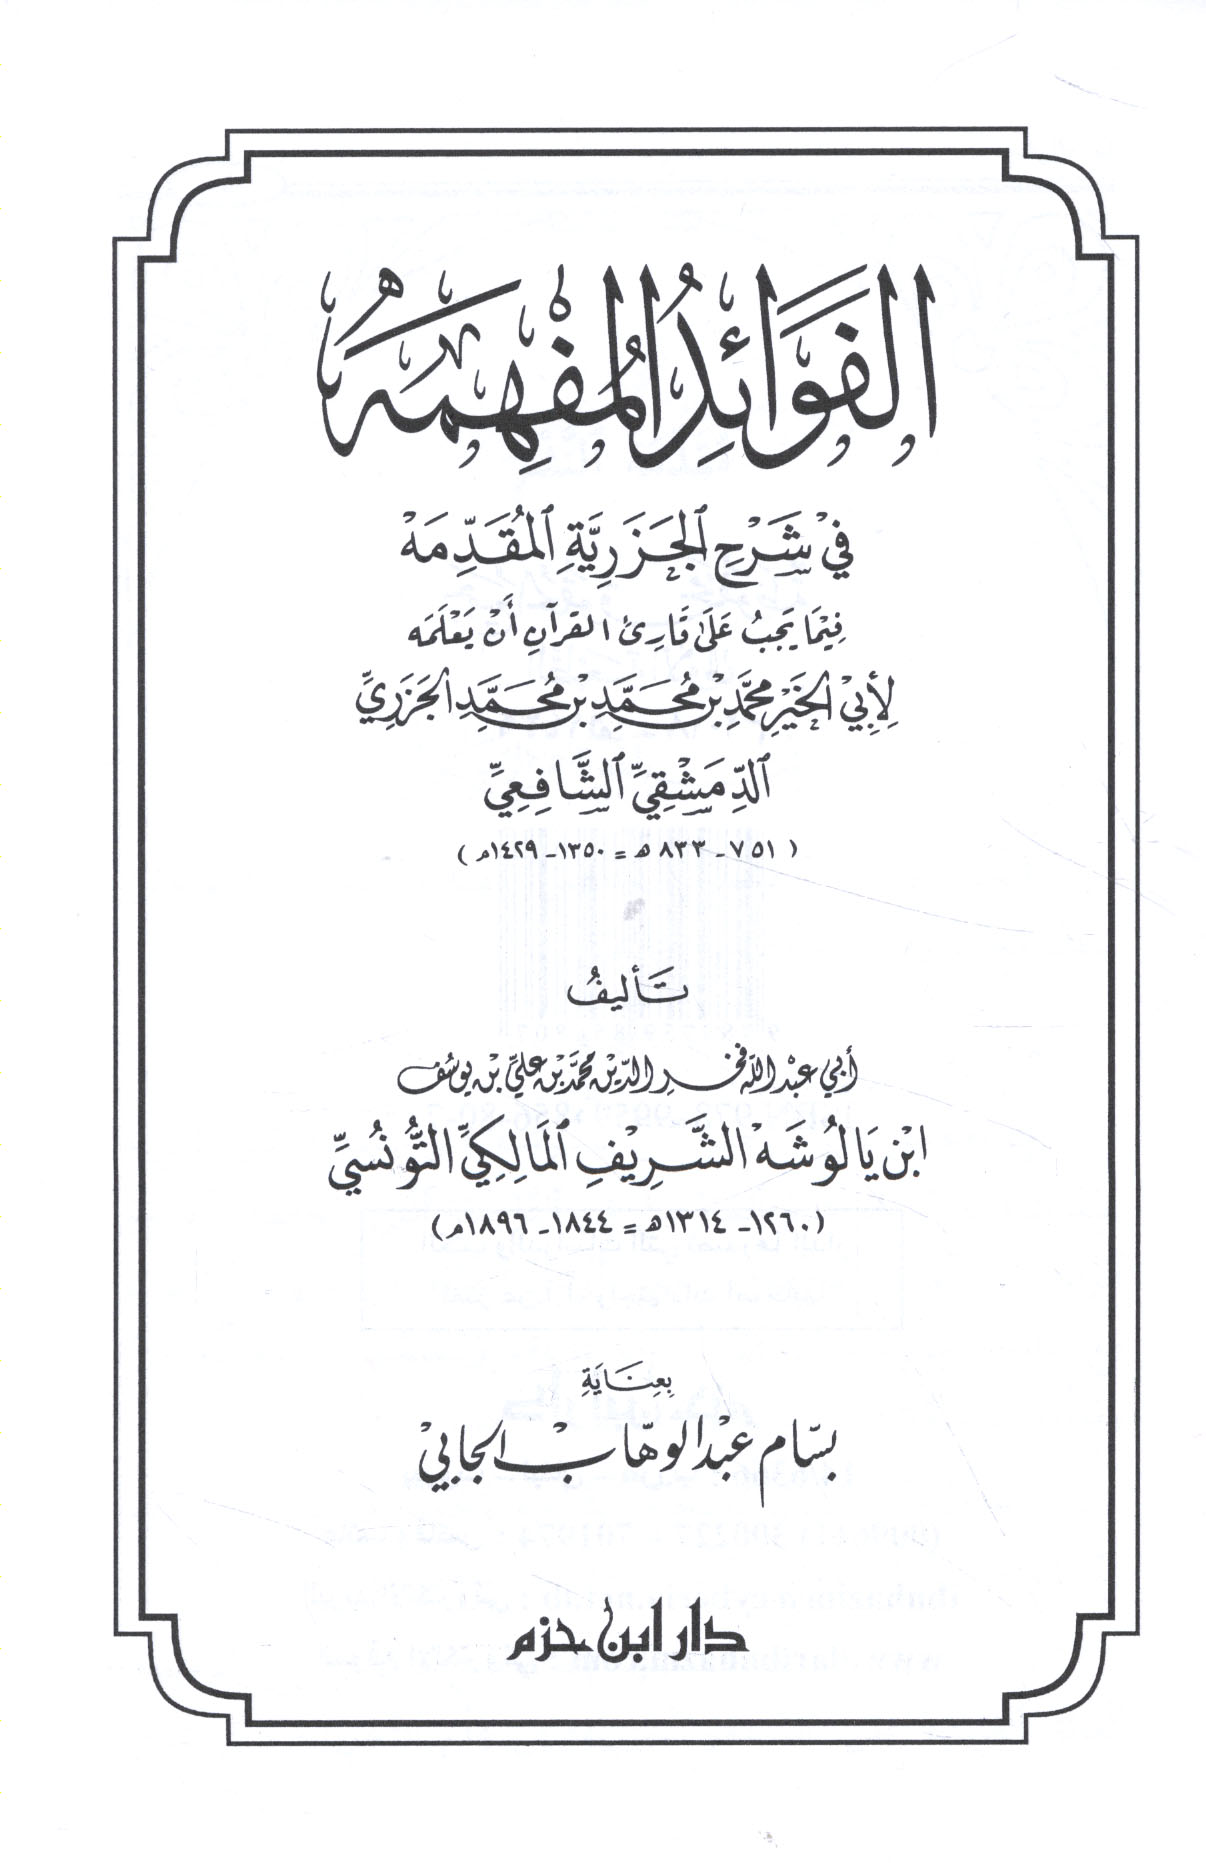 الفَوَائِدُ المُفْهِمَه
فِيْ شَرْحِ الجَزَرِيَّةِ المُقَدِّمَهْ
فِيْمَا يَجِبُ عَلَى قَارِئِ القرآنِ أَنْ يَعْلَمَه
لِأَبِيْ الخَيْرِ مُحَمَّدِ بْنِ مُحَمَّدِ بْنِ مُحَمَّدِ الجَزَرِيِّ
الدِّمَشْقِيِّ الشَّافِعِيِّ
( ٧٥١ - ٨٣٣ هـ = ١٣٥٠ - ١٤٢٩م )
تَأليفُ
أبي عبد الله فخر الدّين محمّد بن عليّ بن يوسُف
ابْن يَالُوشَهْ الشَّرِيْفِ المَالِكِيِّ التُّونُسِيِّ
(١٢٦٠ - ١٣١٤هـ = ١٨٤٤ - ١٨٩٦م)
بِعِنَايَةِ
بسّام عبْد الوهّاب الجابيْ
دار ابن حزم